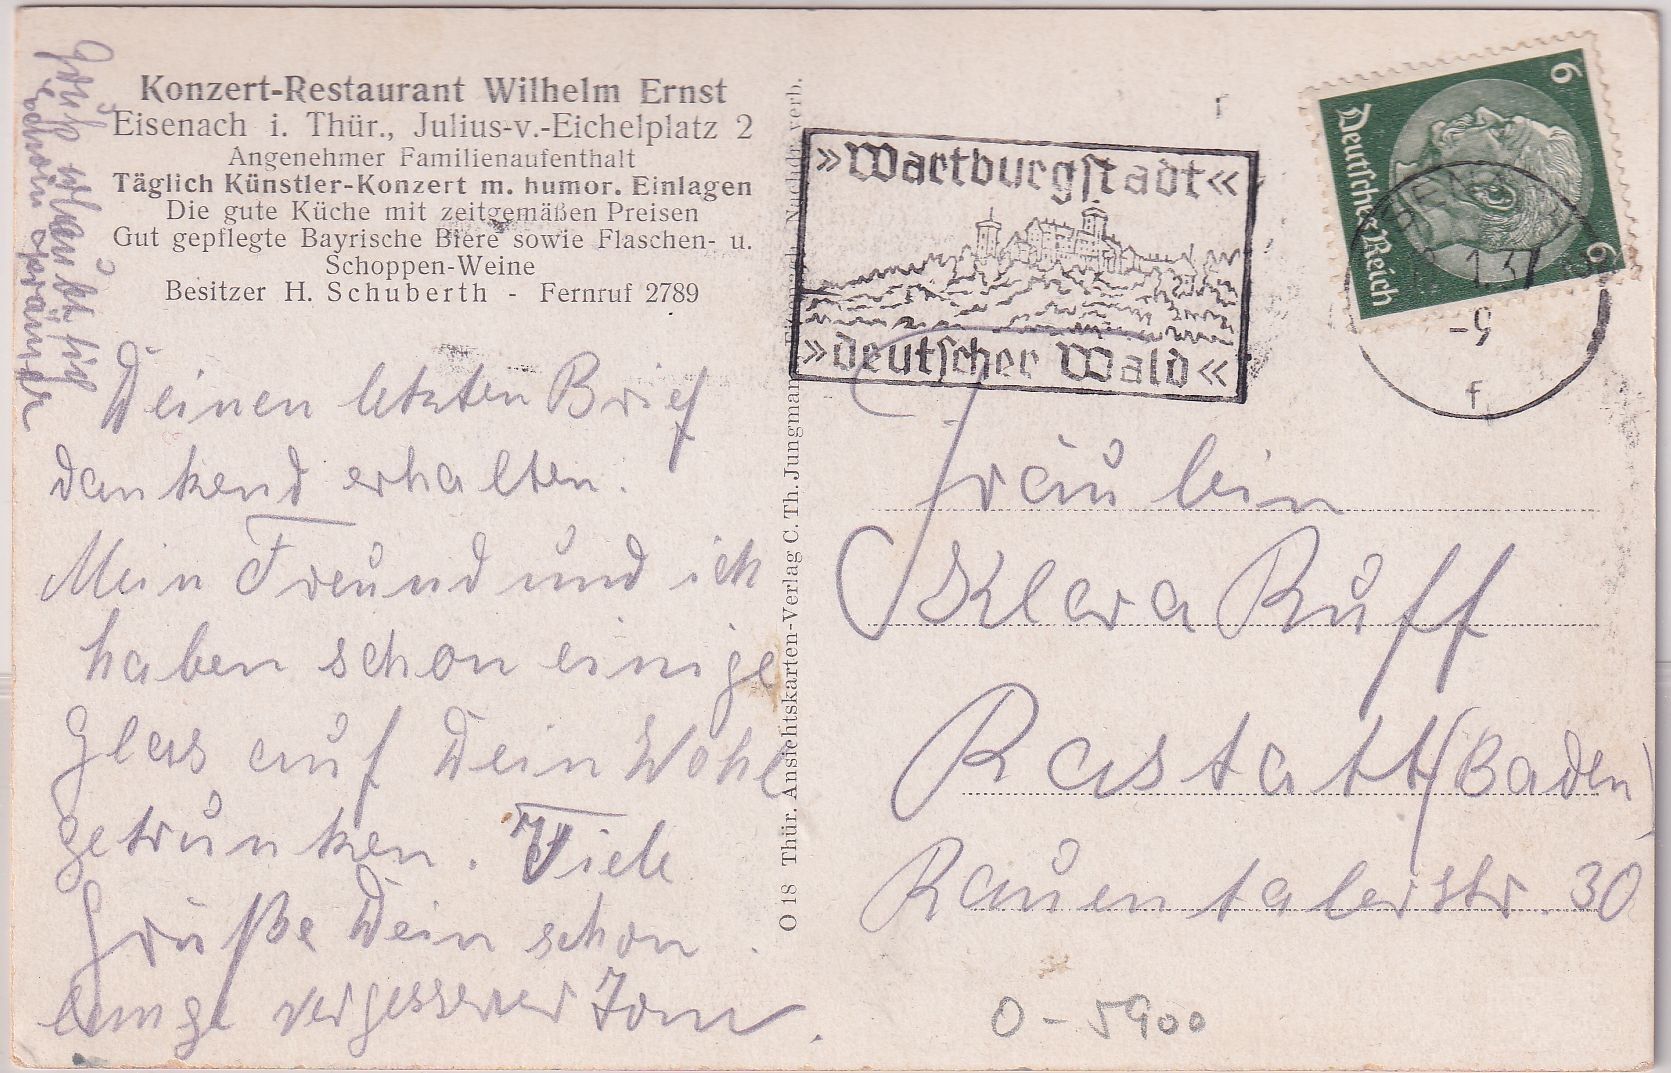 Konzert-Restaurant Wilhelm Ernst
Eisenach i. Thür., Julius-v.-Eichelplatz 2
Angenehmer Familienaufenthalt
Täglich Künstler-Konzert m. humor. Einlagen
Die gute Küche mit zeitgemäßen Preisen
Gut gepflegte Bayrische Biere sowie Flaschen- u.
Schoppen-Weine
Besitzer H. Schuberth - Fernruf 2789
Deinen letzten Brief
dankend erhalten.
Mein Freund und ich
haben schon einige
Glas auf Dein Wohl
getrunken. Viele
Grüße Dein schon
lange vergessener
schon
O 18 Thür. Ansichtskarten-Verlag C. Th. Jungmann
Nachdr. verb.
»Wartburgstadt«
»deutscher Wald«
6
Deutsches Reich
6
1.37
-9
f
Fräulein
Klara Ruff
Rastatt (Baden)
Rauentalerstr. 30
O - 5900